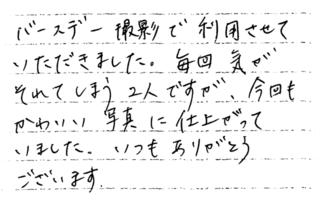 バースデー撮影で利用させて
いただきました。毎回気が
それてしまう2人ですが、今回も
かわいい写真に仕上がって
いました。いつもありがとう
ございます.